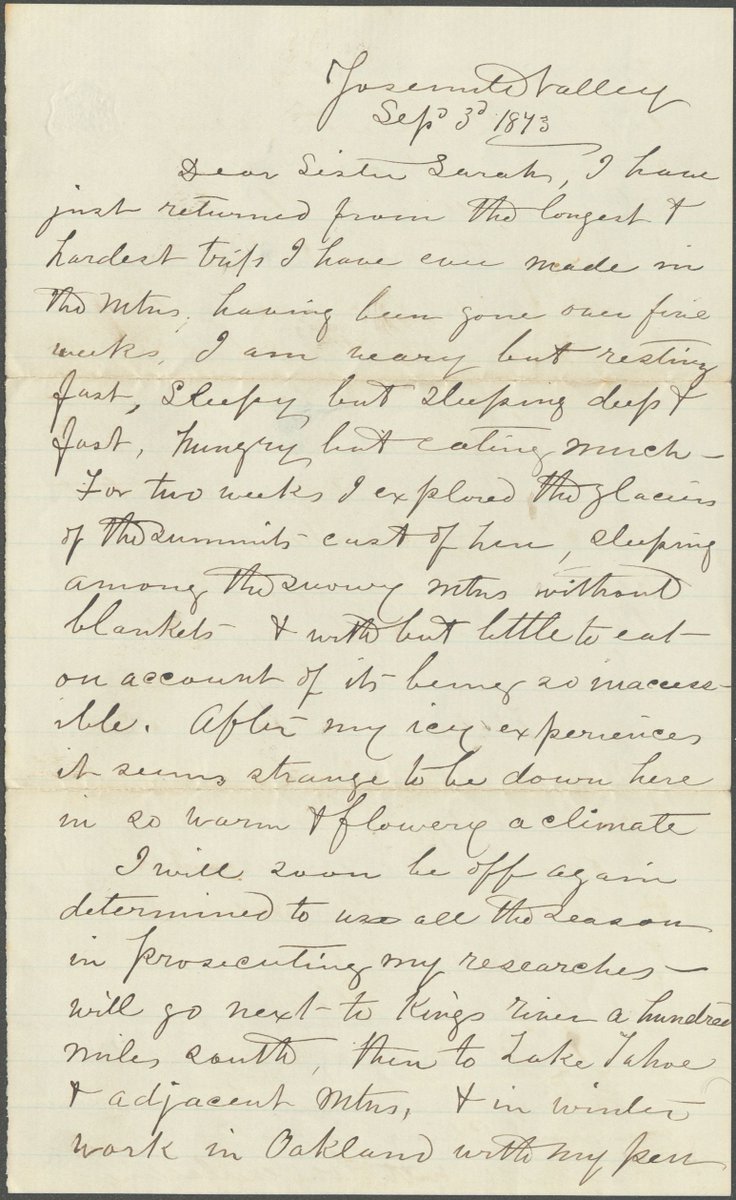 Yosemite Valley
Sept 3d 1873
Dear Sister Sarah, I have
just returned from the longest &
hardest trip I have ever made in
the Mtns, having been gone over five
weeks. I am weary but resting
fast, sleepy but sleeping deep &
fast, hungry but eating much –
For two weeks I explored the glaciers
of the summits east of here, sleeping
among the snowy mtns without
blankets & with but little to eat
on account of its being so inaccess-
ible. After my icy experiences
it seems strange to be down here
in so warm & flowery a climate
I will soon be off again
determined to use all the season
in prosecuting my researches –
will go next to Kings river a hundred
miles south, then to Lake Tahoe
& adjacent Mtns, & in winter
work in Oakland with my pen